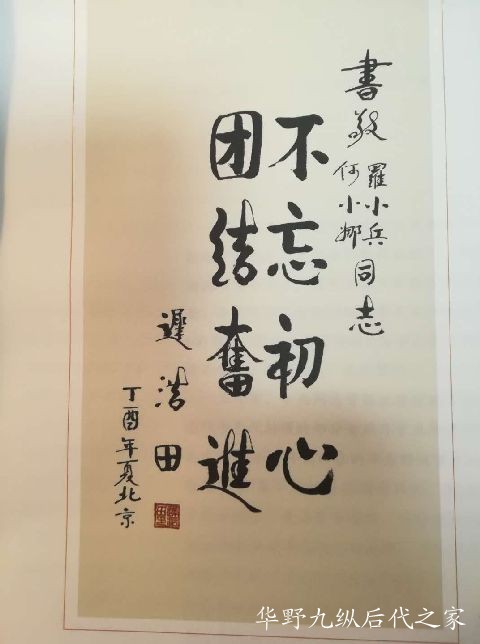 書敬羅小兵何小娜同志
不忘初心
团结奮進
遲浩田
丁酉年夏北京
华野九纵后代之家